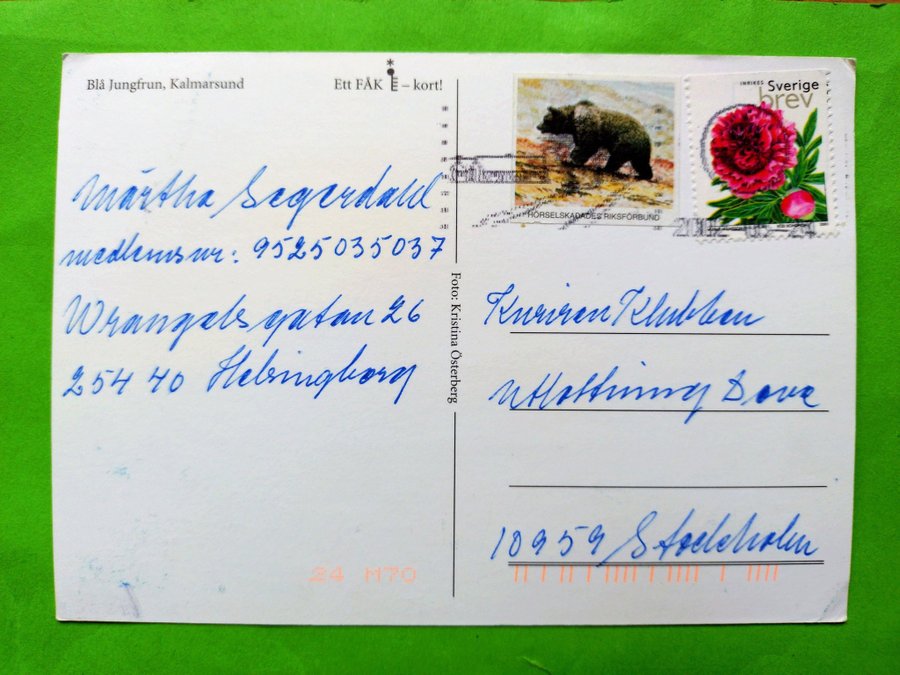 Blå Jungfrun, Kalmarsund
Ett FÅK – kort!
Märtha Segerdahl
medlemsnr: 9525035037
Wrangelsgatan 26
254 40 Helsingborg
Foto: Kristina Österberg
HÖRSELSKADADES RIKSFÖRBUND
INRIKES
Sverige
brev
Kuriren Klubben
Utlottning Dova
10959 Stockholm
24 M70